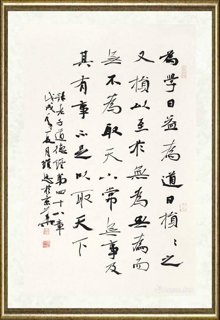 為學日益為道日損損之
又損以至於無為無為而
無不為取天下常無事及
其有事不足以取天下
錄老子道德經第四十八章
戊戌年夏月